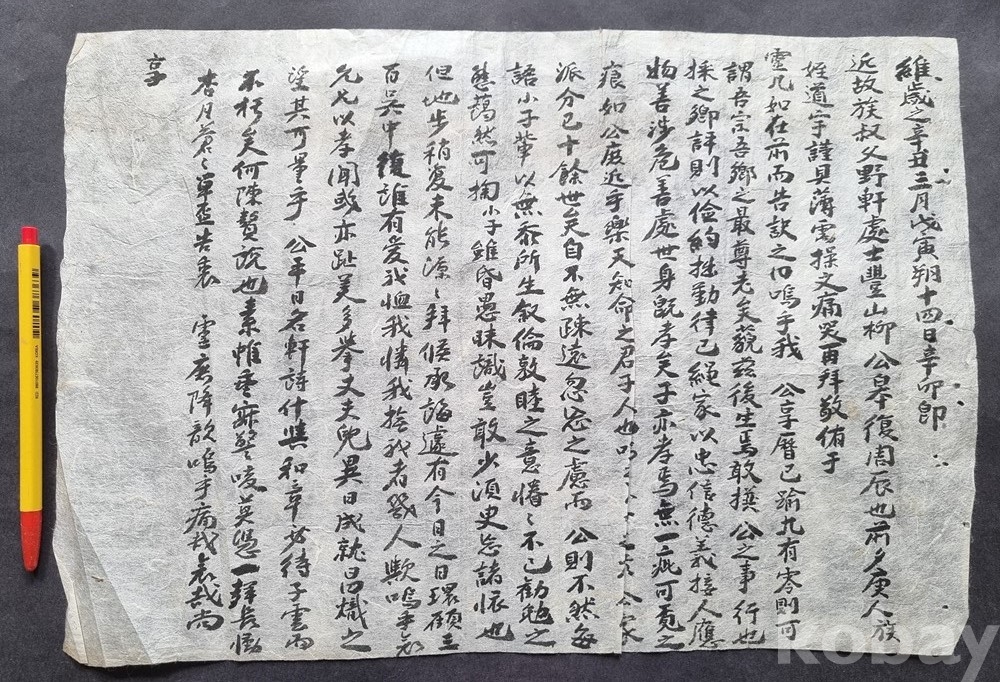 維歲之辛丑三月戊寅朔十四日辛卯卽
近故族叔父野軒處士豐山柳 公皋復周辰也前夕庚人族
姪道宇謹具薄需操文痛哭再拜敬侑于
靈凡如在前而告訣之曰嗚乎我 公享曆已踰九有零則可
謂吾宗吾鄉之最尊老矣藐玆後生焉敢撰 公之事行也
採之鄉評則以儉約拙勤律己繩家以忠信德義接人應
物善涉危善處世身旣孝矣子亦孝焉無一疵可覓之
痕如公庶近乎樂天知命之君子人也
派分已十餘世矣自不無疎遠忽忘之慮而 公則不然每
語小子輩以無忝所生敍倫敦睦之意惓〻不已勸勉之
態藹然可掬小子雖昏愚昧識豈敢少須臾忘諸懷也
但地步稍夐未能源〻拜候承誨遽有今日之日環顧
百 中復誰有愛我恤我憐我捨我者幾人歟嗚乎
允兄以孝聞 亦趾美多擧丈夫兒異日成就昌熾之
望其可量乎 公平日名軒詩什 和章 待子雲而
不朽矣何陳贅 也素帷 寂警咳莫憑一拜長慟
杏月蒼〻單盃告衷 靈庶降歆嗚乎痛哉哀哉尙
享
kobay